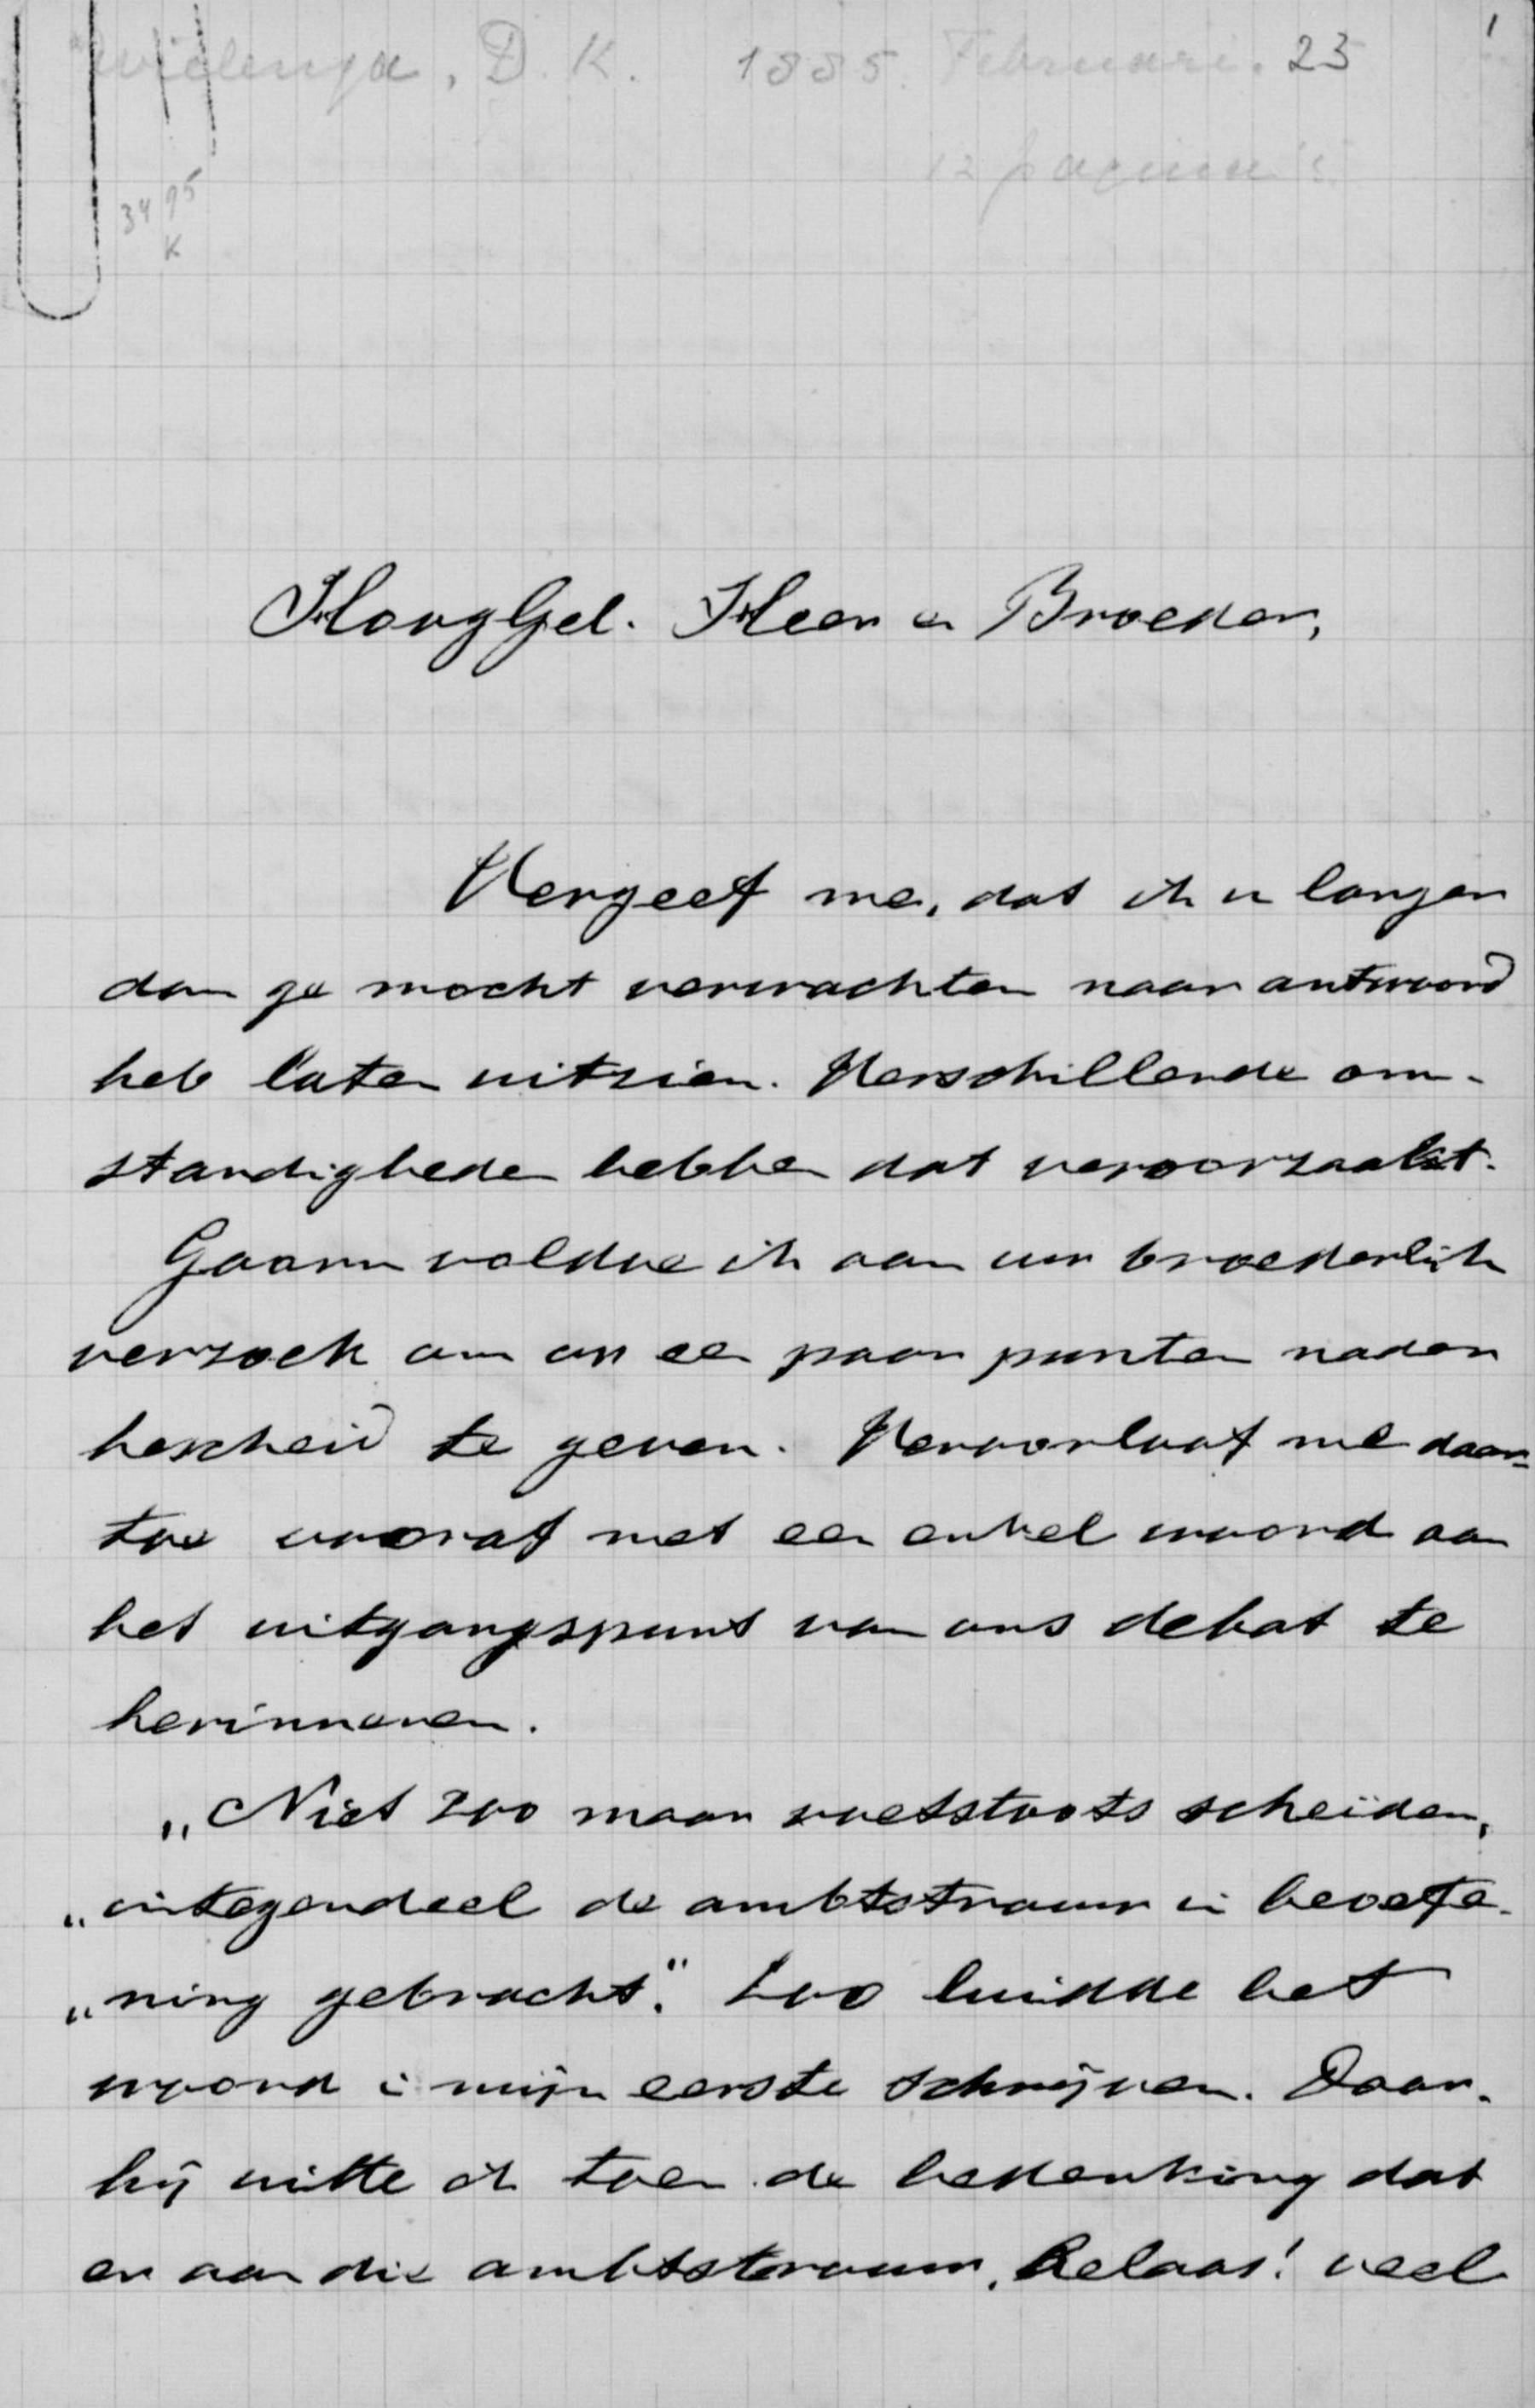 Wielenga, D. K. 1885 Februari. 23
1
12 pagina's.
3495
K
HoogGel. Heer en Broeder,
Vergeef me, dat ik u langer
dan ge mocht verwachten naar antwoord
heb laten uitzien. Verschillende om-
standigheden hebben dat veroorzaakt.
Gaarne voldoe ik aan uw broederlijk
verzoek om op een paar punten nader
bescheid te geven. Veroorloof me daar-
toe vooraf met een enkel woord aan
het uitgangspunt van ons debat te
herinneren.
„Niet zoo maar voetstoots scheiden,
„integendeel de ambtstrouw in beoefe-
„ning gebracht." Zoo luidde het
woord in mijn eerste schrijven. Daar-
bij uitte ik toen de bedenking dat
er aan die ambtstrouw, helaas! veel